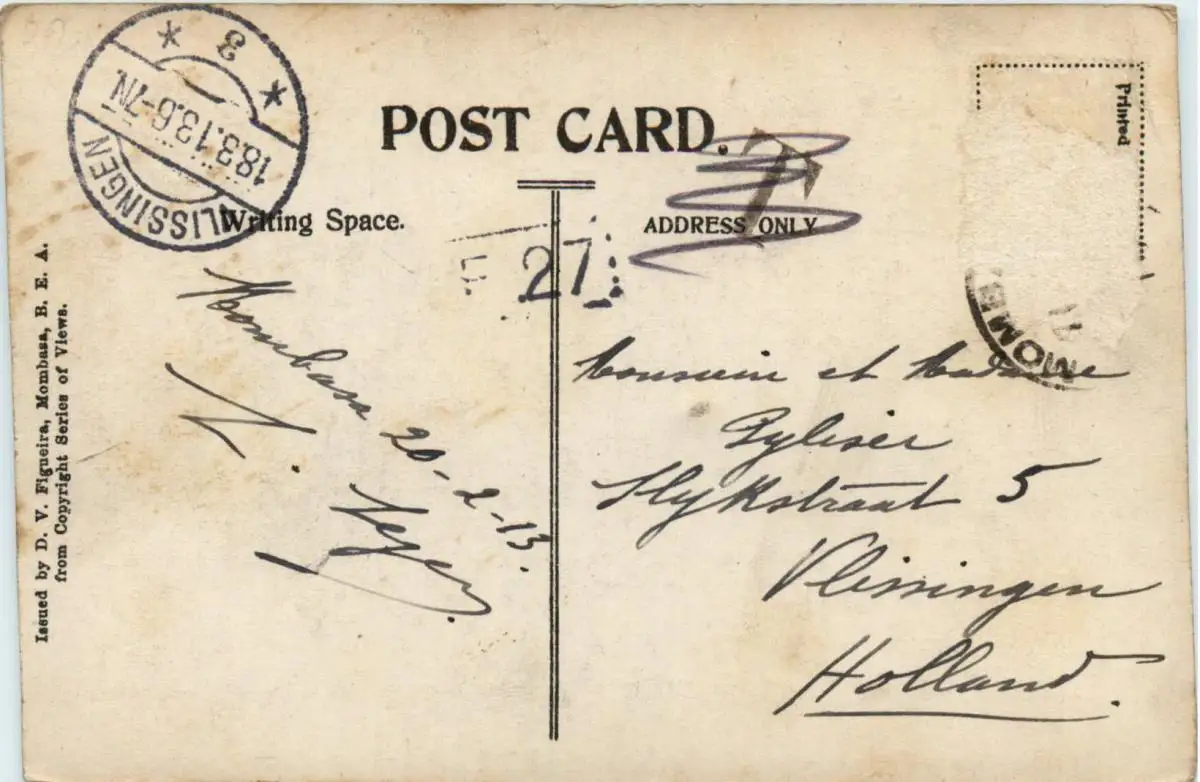 VLISSINGEN
18.3.13.6-7N.
3
POST CARD.
T
Writing Space.
ADDRESS ONLY
Printed
27
MOMB
Issued by D. V. Figueira, Mombasa, B. E. A.
from Copyright Series of Views.
Mombasa 20-2-13.
Monsieur et Madame
Slykstraat 5
Vlissingen
Holland.